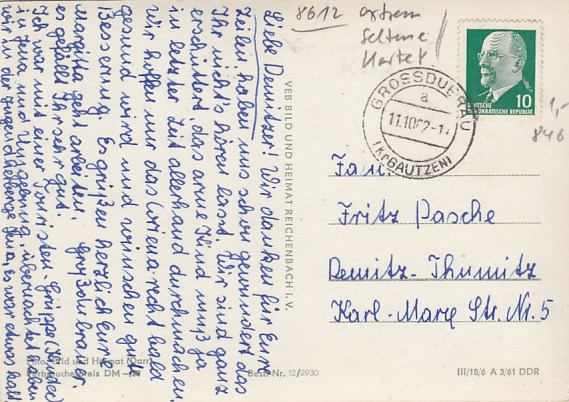 8612 extrem
Seltene
Karte!
GROSSDUBRAU
a
11.10.62-17
(Kr BAUTZEN)
DEUTSCHE
DEMOKRATISCHE REPUBLIK
10
1,-
846
Fam.
Fritz Pasche
Demitz-Thumitz
Karl-Marx Str. Nr. 5
Liebe Demitzer! Wir danken für Eure
Zeilen haben uns schon gewundert das
Ihr nicht's hören lasst. Wir sind ganz
erschüttert, das arme Kind muß ja
in letzter Zeit allerhand durchmachen,
wir hoffen nur das Corinna recht bald
gesund wird und wünschen gute
Besserung. Es grüßen herzlich Eure
Großdubrauer.
Margitta geht arbeiten,
es gefällt Ihr sehr gut.
Ich war mit einer Touristen-Gruppe (Kinder)
in Jena und Umgebung, übernachtet haben
wir in der Jugendherberge Jena, es war etwas kalt
VEB BILD UND HEIMAT REICHENBACH I. V.
Foto: Bild und Heimat (Darr)
Verbraucherpreis DM
Best.-Nr. 12/2930
III/18/6 A 3/61 DDR